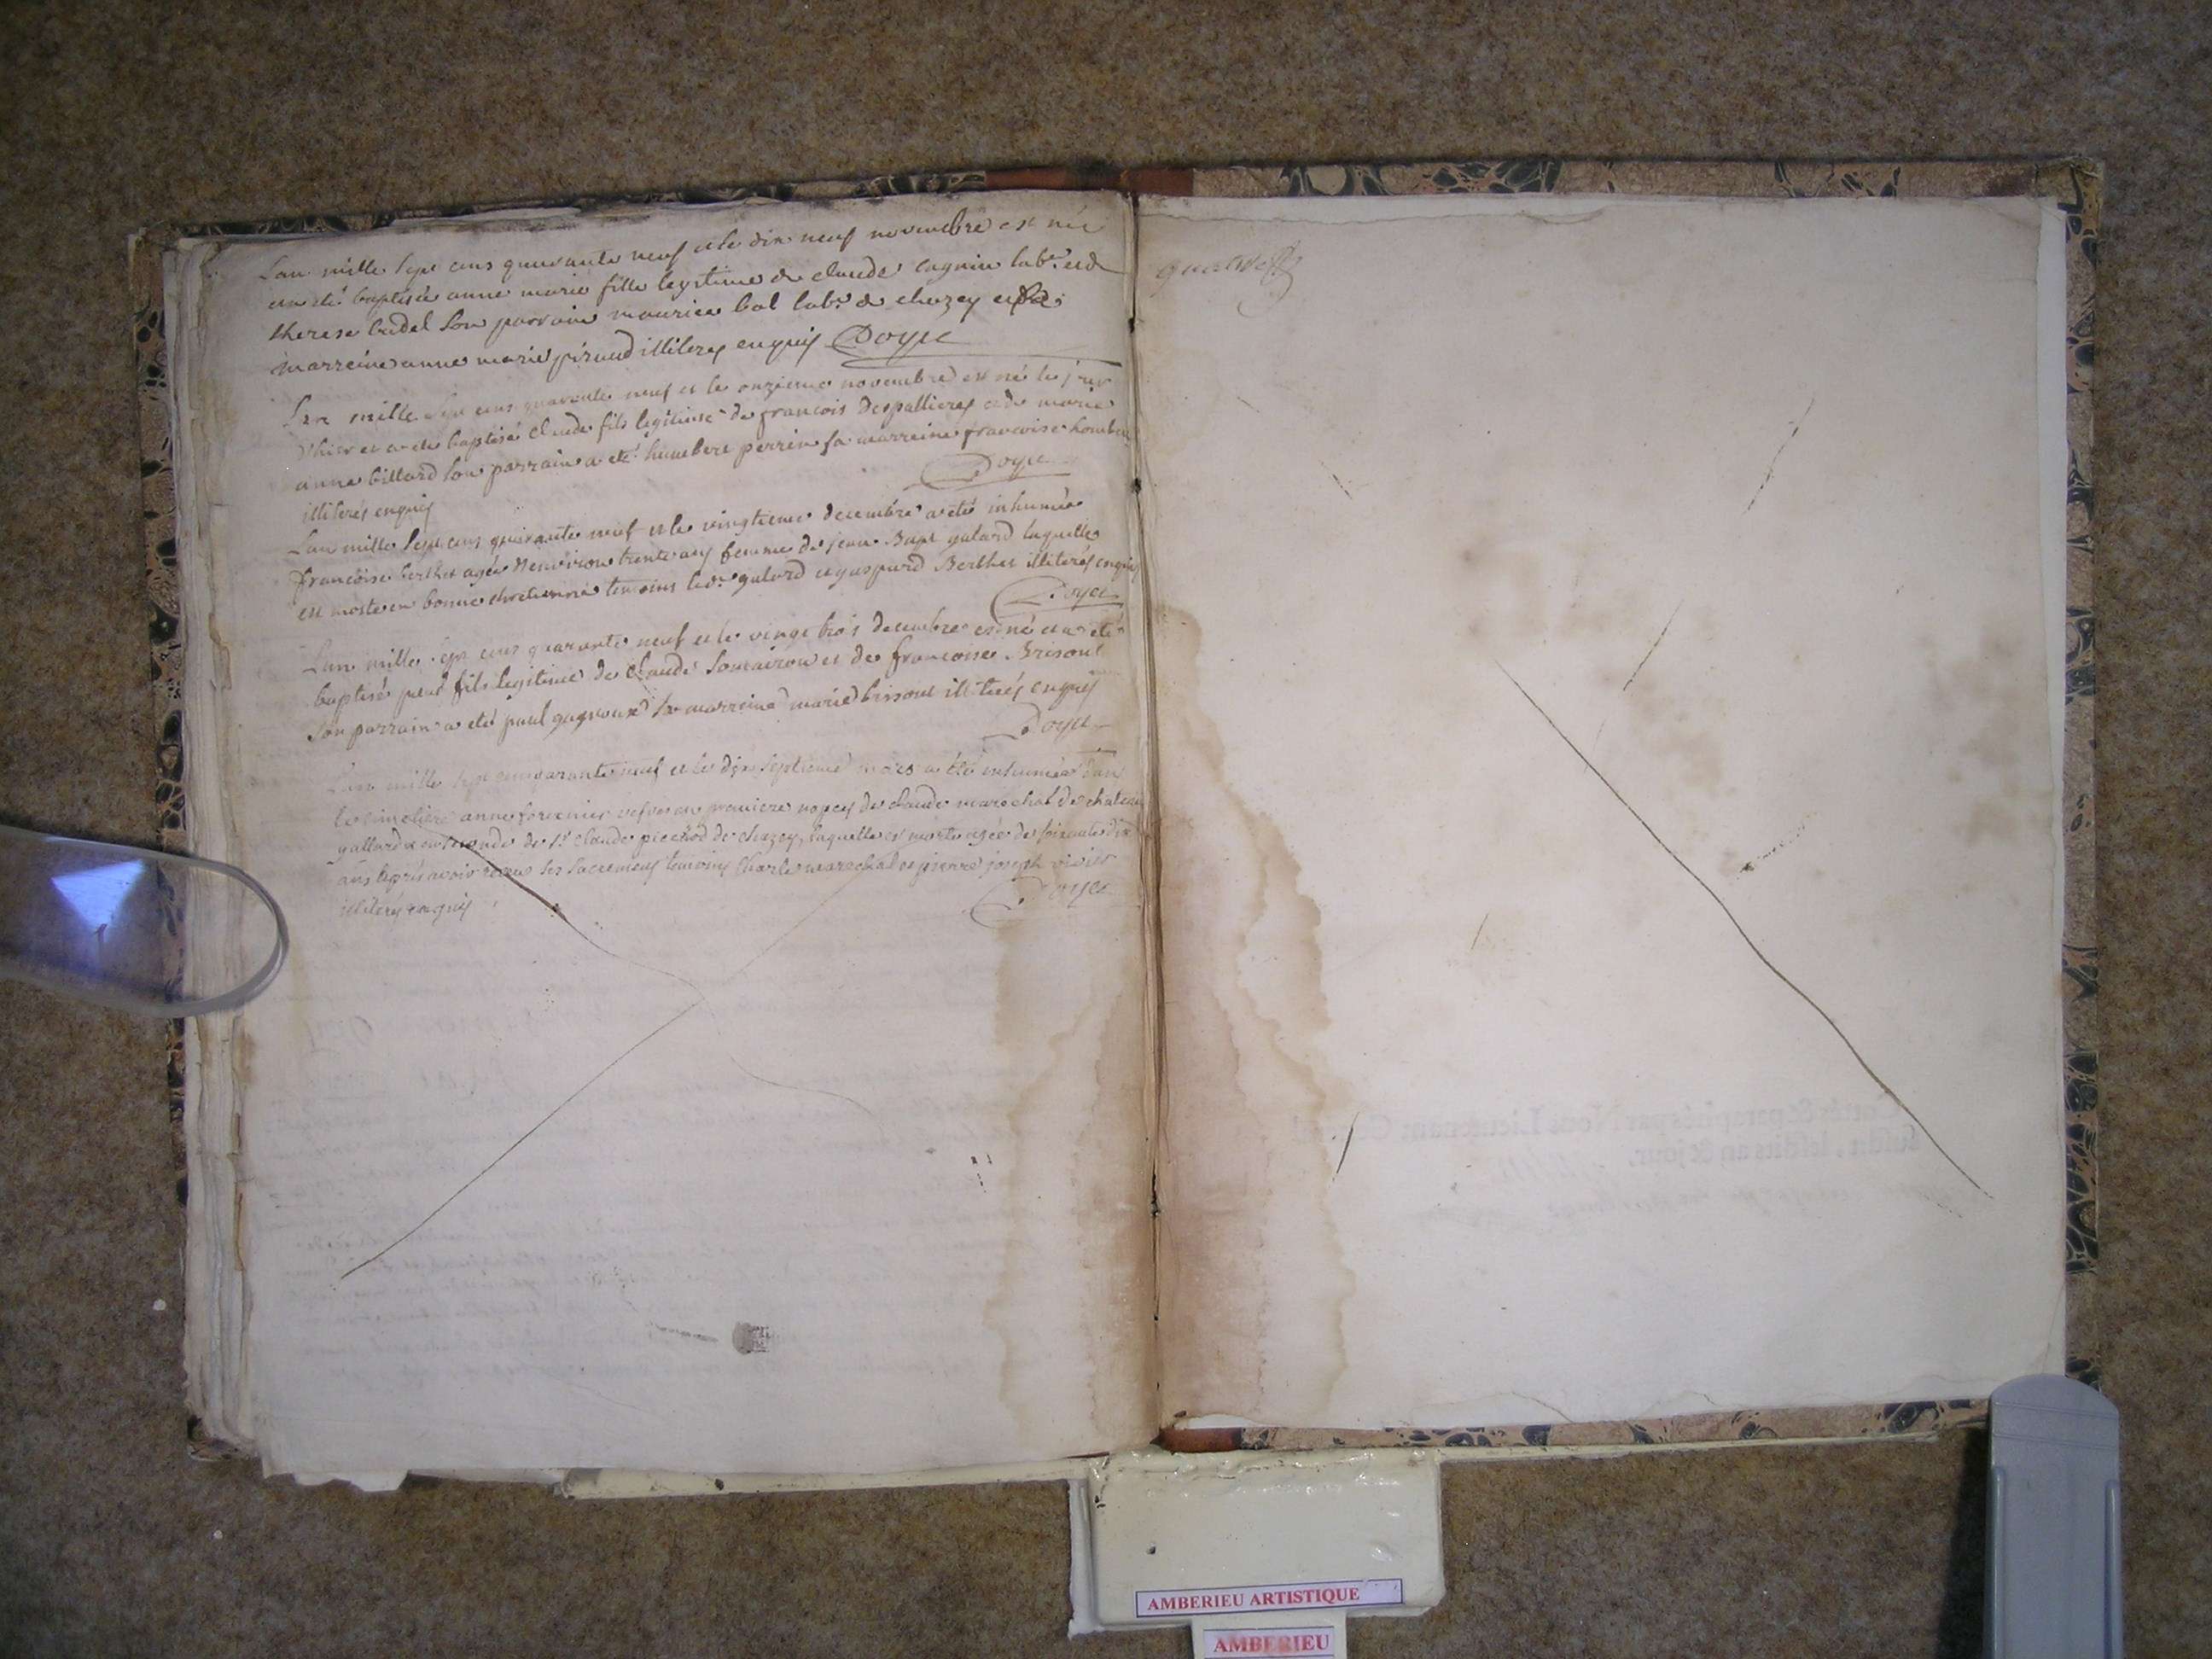 L'an mille sept cens quarante neuf et le dix neuf novembre est née
et a été baptisée anne marie fille legitime de claude cagnin labr. et de
therese budel son parrain maurice bal labr. de chazey et sa
marreine anne marie piraud illiterés enquis Doyer
L'an mille sept cens quarante neuf et le onzieme novembre est né le jour
d'hier et a été baptisé claude fils legitime de francois despallieres et de marie
anne billard son parrain a eté humbert perrin sa marreine francoise
illiterés enquis Doyer
L'an mille sept cens quarante neuf et le vingtieme decembre a eté inhumée
francoise berthet agée d'environ trente ans femme de jean Bapt galard laquelle
est morte en bonne chretienne temoins led. galard et gaspard Berthet illiterés enquis
Doyer
L'an mille sept cens quarante neuf et le vingt trois decembre est né et a eté
baptisé paul fils legitime de claude et de francoise Brisout
son parrain a eté paul sa marreine marie brisout illiterés enquis
Doyer
L'an mille sept cens quarante neuf et le dix septieme a été inhumée dans
le cimetiere anne vefve en premiere nopces de claude marechal de chateau
gallard et en seconde de Sr claude de chazey, laquelle est morte agée de soixante dix
ans après avoir receu ses sacremens temoins Charle marechal et pierre joseph
illiterés enquis Doyer
Cottés & paraphés par Nous Lieutenant General
susdit, lesdits an & jour.
AMBERIEU ARTISTIQUE
AMBERIEU